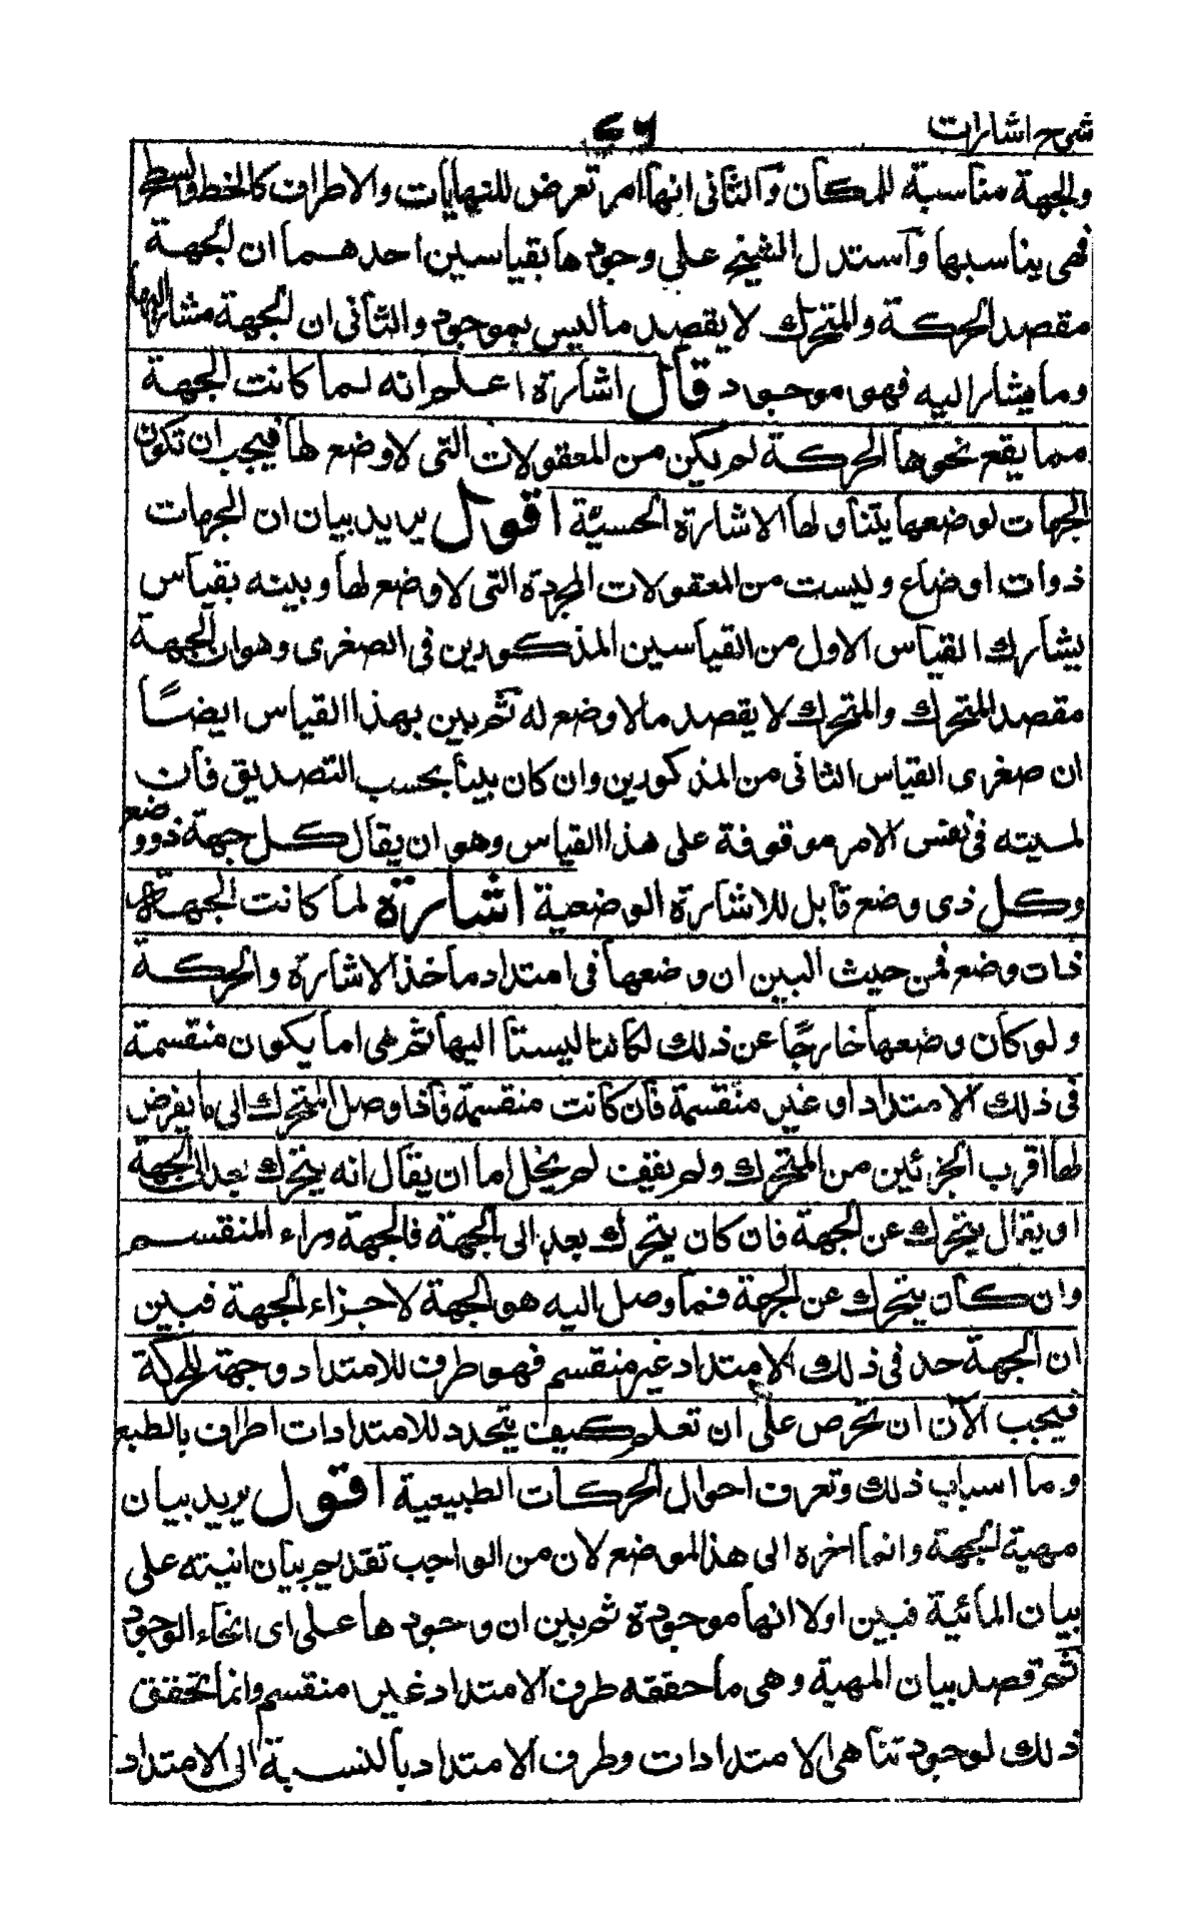 شرح اشارات
٤٦
والجهة مناسبة للمكان والثانى انها امر تعرض للنهايات والاطراف كالخط والسطح
فهى يناسبها واستدل الشيخ على وجودها بقياسين احدهما ان الجهة
مقصد الحركة والمتحرك لا يقصد ما ليس بموجود والثانى ان الجهة مشار اليها
وما يشار اليه فهو موجود قال اشارة اعلم انه لما كانت الجهة
مما يقع نحوها الحركة لم يكن من المعقولات التى لا وضع لها فيجب ان تكون
الجهات لوضعها يتناولها الاشارة الحسيّة اقول يريد بيان ان الجهات
ذوات اوضاع وليست من المعقولات المجردة التى لا وضع لها وبينه بقياس
يشارك القياس الاول من القياسين المذكورين فى الصغرى وهو ان الجهة
مقصد المتحرك والمتحرك لا يقصد ما لا وضع له ثم بين بهذا القياس ايضًا
ان صغرى القياس الثانى من المذكورين وان كان بينا بحسب التصديق فان
لميته فى نفس الامر موقوفة على هذا القياس وهو ان يقال كل جهة ذو وضع
وكل ذى وضع قابل للاشارة الوضعية اشارة لما كانت الجهة
ذات وضع فمن حيث البين ان وضعها فى امتداد ماخذ الاشارة والحركة
ولو كان وضعها خارجًا عن ذلك لكانتا ليستا اليها ثم هى اما يكون منقسمة
فى ذلك الامتداد او غير منقسمة فان كانت منقسمة فاذا وصل المتحرك الى ما يفرض
لها اقرب الجزئين من المتحرك ولم يقف لم يخل اما ان يقال انه يتحرك بعد الى الجهة
او يقال يتحرك عن الجهة فان كان يتحرك بعد الى الجهة فالجهة وراء المنقسم
وان كان يتحرك عن الجهة فما وصل اليه هو الجهة لا جزاء الجهة فبين
ان الجهة حد فى ذلك الامتداد غير منقسم فهو طرف للامتداد وجهة للحركة
فيجب الآن ان تحرص على ان تعلم كيف يتحدد للامتدادات اطراف بالطبع
وما اسباب ذلك وتعرف احوال الحركات الطبيعية اقول يريد بيان
مهية الجهة وانما اخره الى هذا الموضع لان من الواجب تقديم بيان انيته على
بيان المائية فبين اولا انها موجودة ثم بين ان وجودها على اى انحاء الوجود
ثم قصد بيان المهية وهى ما حققه طرف الامتداد غير منقسم وانما تحقق
ذلك لوجود تناهى الامتدادات وطرف الامتداد بالنسبة الى الامتداد